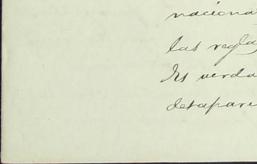 naciona
las regla
Es verda
desapare